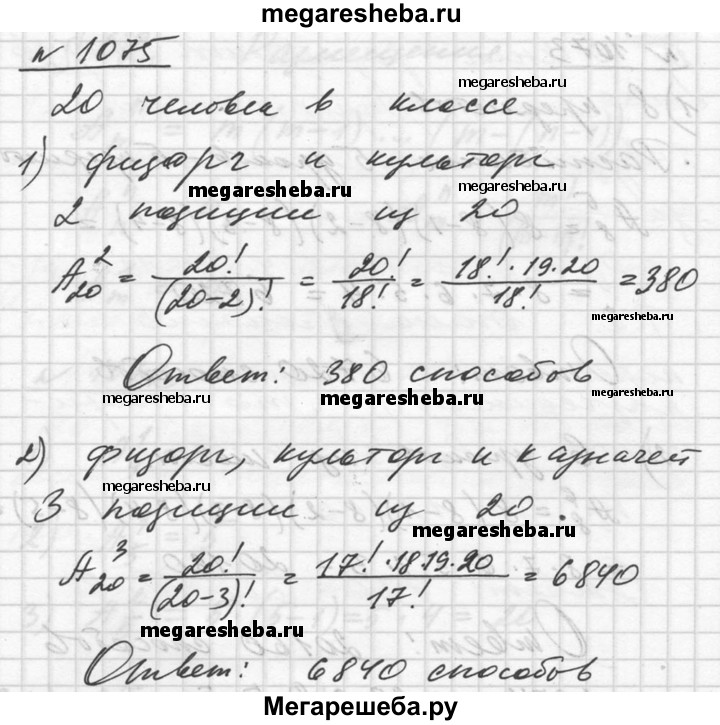 megaresheba.ru
№ 1075
20 человек в классе
megaresheba.ru
1) физорг и культорг
megaresheba.ru
megaresheba.ru
2 позиции из 20
A₂₀² = 20!/(20-2)! = 20!/18! = 18!·19·20/18! = 380
megaresheba.ru
Ответ: 380 способов
megaresheba.ru
megaresheba.ru
megaresheba.ru
2) физорг, культорг и казначей
megaresheba.ru
3 позиции из 20.
megaresheba.ru
A₂₀³ = 20!/(20-3)! = 17!·18·19·20/17! = 6840
megaresheba.ru
Ответ: 6840 способов
Мегарешеба.ру